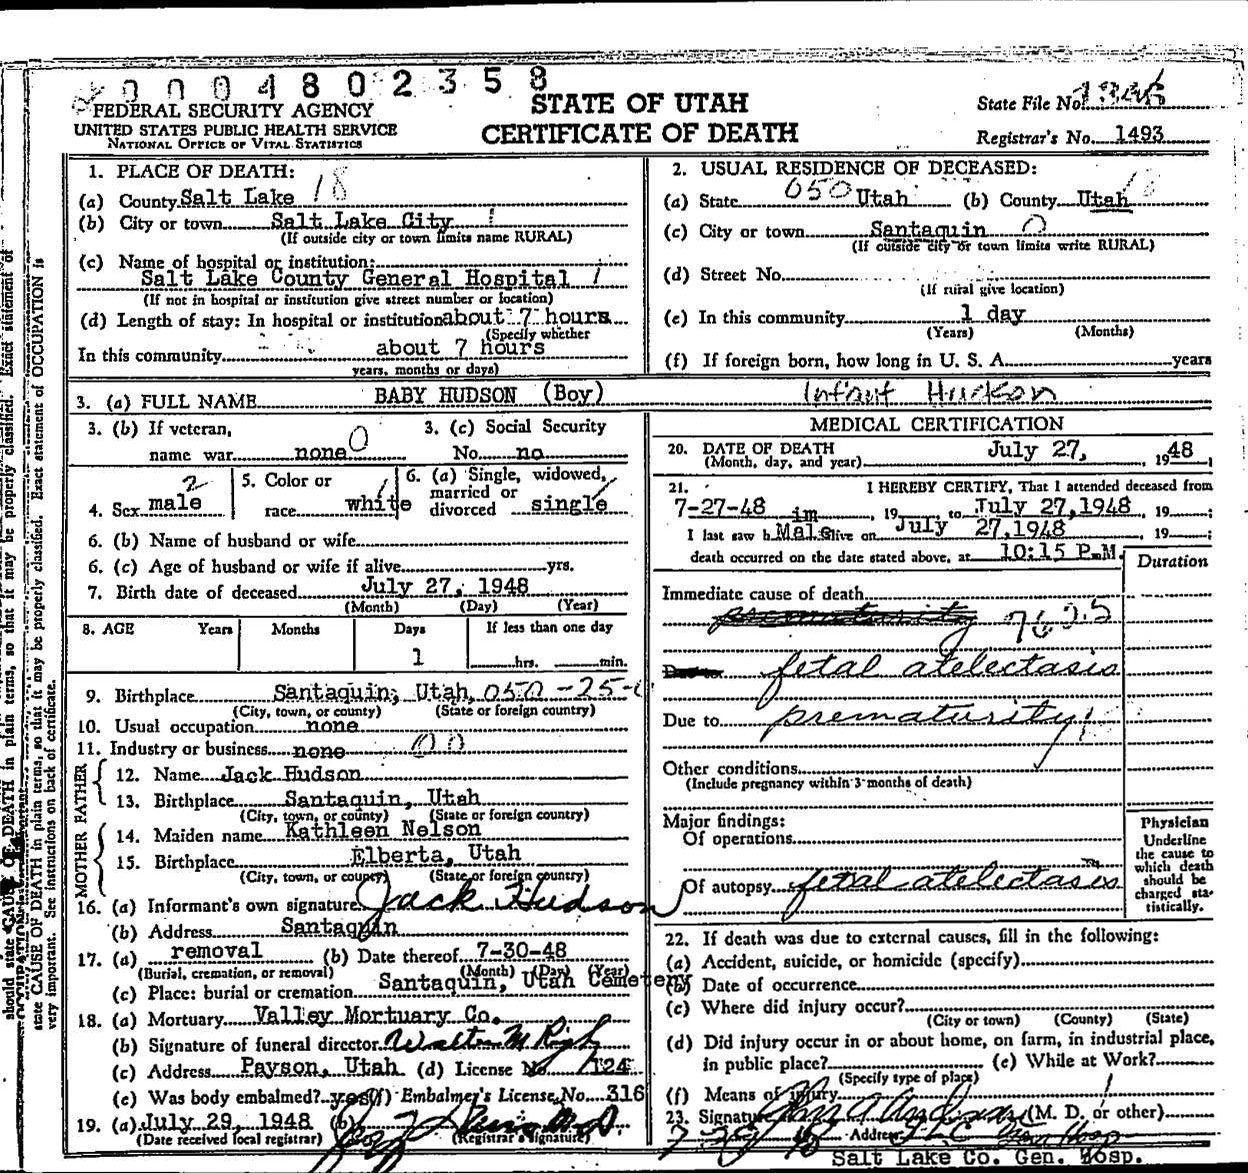 0004802358
FEDERAL SECURITY AGENCY
UNITED STATES PUBLIC HEALTH SERVICE
NATIONAL OFFICE OF VITAL STATISTICS
STATE OF UTAH
CERTIFICATE OF DEATH
State File No.
Registrar's No. 1493
1. PLACE OF DEATH:
(a) County Salt Lake 18
(b) City or town Salt Lake City 1
(If outside city or town limits name RURAL)
(c) Name of hospital or institution:
Salt Lake County General Hospital 1
(If not in hospital or institution give street number or location)
(d) Length of stay: In hospital or institution about 7 hours
(Specify whether
In this community about 7 hours
years, months or days)
2. USUAL RESIDENCE OF DECEASED:
(a) State 050 Utah (b) County Utah
(c) City or town Santaquin 0
(If outside city or town limits write RURAL)
(d) Street No.
(If rural give location)
(e) In this community 1 day
(Years) (Months)
(f) If foreign born, how long in U. S. A. years
3. (a) FULL NAME BABY HUDSON (Boy) Infant Hudson
3. (b) If veteran,
name war none 0
3. (c) Social Security
No. no
4. Sex male 2
5. Color or
race white 1
6. (a) Single, widowed,
married or
divorced single
6. (b) Name of husband or wife
6. (c) Age of husband or wife if alive yrs.
7. Birth date of deceased July 27, 1948
(Month) (Day) (Year)
8. AGE Years Months Days If less than one day
1 hrs. min.
9. Birthplace Santaquin, Utah 050-25-
(City, town, or county) (State or foreign country)
10. Usual occupation none
11. Industry or business none 00
FATHER
12. Name Jack Hudson
13. Birthplace Santaquin, Utah
(City, town, or county) (State or foreign country)
MOTHER
14. Maiden name Kathleen Nelson
15. Birthplace Elberta, Utah
(City, town, or county) (State or foreign country)
16. (a) Informant's own signature Jack Hudson
(b) Address Santaquin
17. (a) removal (b) Date thereof 7-30-48
(Burial, cremation, or removal) (Month) (Day) (Year)
(c) Place: burial or cremation Santaquin, Utah Cemetery
18. (a) Mortuary Valley Mortuary Co.
(b) Signature of funeral director Walter M
(c) Address Payson, Utah (d) License No. 124
(e) Was body embalmed? yes (f) Embalmer's License No. 316
19. (a) July 29, 1948 (b)
(Date received local registrar) (Registrar's signature)
MEDICAL CERTIFICATION
20. DATE OF DEATH
(Month, day, and year) July 27, 1948
21. I HEREBY CERTIFY, That I attended deceased from
7-27-48, 19 to July 27, 1948, 19 ;
I last saw h im Male alive on July 27, 1948, 19 ;
death occurred on the date stated above, at 10:15 P.M.
Duration
Immediate cause of death
prematurity
fetal atelectasis
Due to prematurity
Other conditions
(Include pregnancy within 3 months of death)
Major findings:
Of operations
Of autopsy fetal atelectasis
Physician
Underline
the cause to
which death
should be
charged sta-
tistically.
22. If death was due to external causes, fill in the following:
(a) Accident, suicide, or homicide (specify)
(b) Date of occurrence
(c) Where did injury occur?
(City or town) (County) (State)
(d) Did injury occur in or about home, on farm, in industrial place,
in public place? (e) While at Work?
(Specify type of place)
(f) Means of injury
23. Signature (M. D. or other)
Address
Salt Lake Co. Gen. Hosp.
should state CAUSE OF DEATH in plain terms, so that it may be properly classified. Exact statement of
state CAUSE OF DEATH in plain terms, so that it may be properly classified. Exact statement of OCCUPATION is
very important. See instructions on back of certificate.